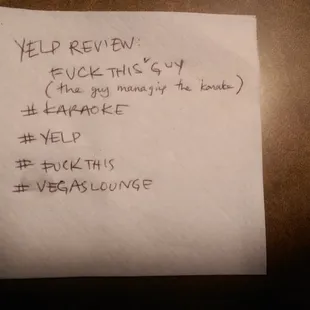 YELP REVIEW:
FUCK THIS "GUY
(the guy managing the karaoke)
# KARAOKE
# YELP
# FUCKTHIS
# VEGASLOUNGE